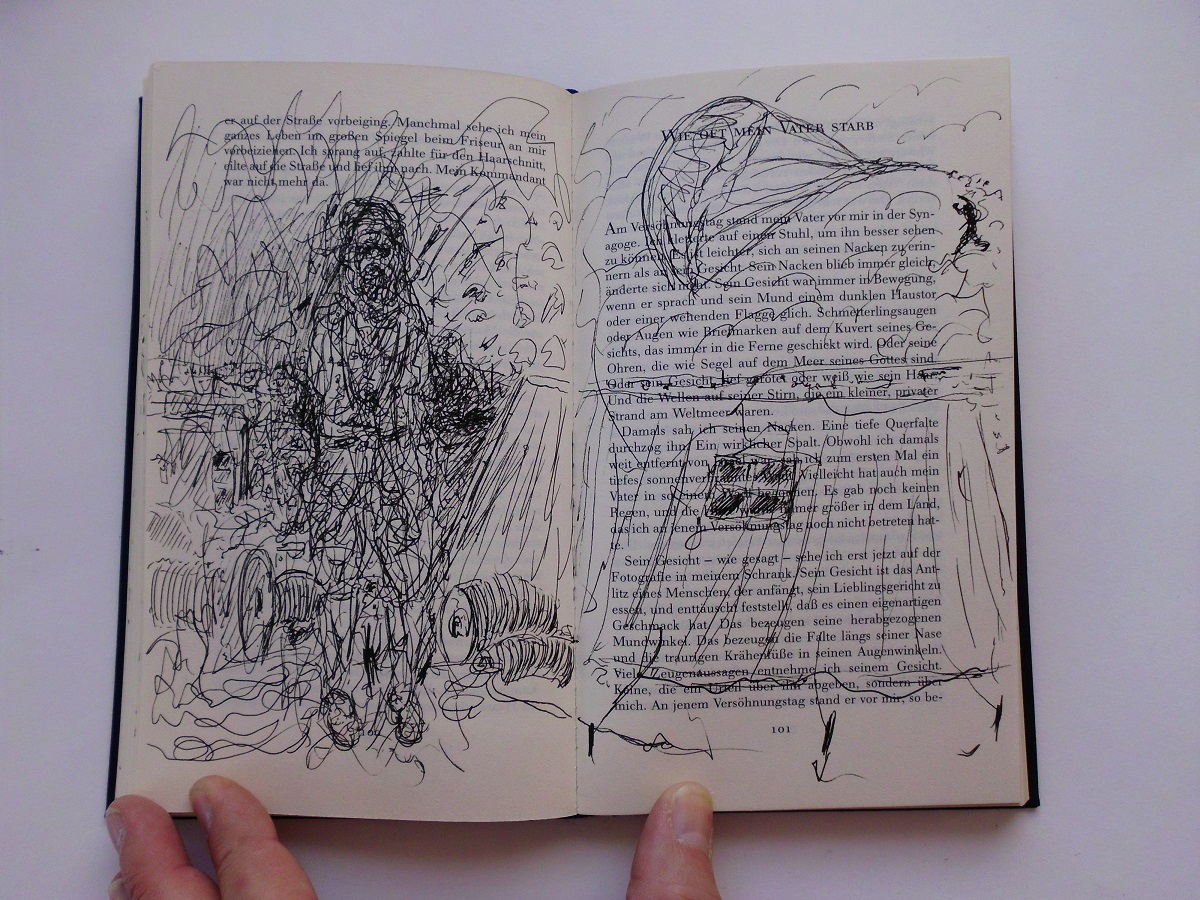 er auf der Straße vorbeiging. Manchmal sehe ich mein
ganzes Leben im großen Spiegel beim Friseur an mir
vorbeiziehen. Ich sprang auf, zahlte für den Haarschnitt,
eilte auf die Straße und lief ihm nach. Mein Kommandant
war nicht mehr da.
100
Wie oft mein Vater starb
Am Versöhnungstag stand mein Vater vor mir in der Syn-
agoge. Ich kletterte auf einen Stuhl, um ihn besser sehen
zu können. Es ist leichter, sich an seinen Nacken zu erin-
nern als an sein Gesicht. Sein Nacken blieb immer gleich,
änderte sich nicht. Sein Gesicht war immer in Bewegung,
wenn er sprach und sein Mund einem dunklen Haustor
oder einer wehenden Flagge glich. Schmetterlingsaugen
oder Augen wie Briefmarken auf dem Kuvert seines Ge-
sichts, das immer in die Ferne geschickt wird. Oder seine
Ohren, die wie Segel auf dem Meer seines Gottes sind.
Oder sein Gesicht, tief gerötet oder weiß wie sein Haar.
Und die Wellen auf seiner Stirn, die ein kleiner, privater
Strand am Weltmeer waren.
Damals sah ich seinen Nacken. Eine tiefe Querfalte
durchzog ihn. Ein wirklicher Spalt. Obwohl ich damals
weit entfernt von war, sah ich zum ersten Mal ein
tiefes, Vielleicht hat auch mein
Vater in so einem Es gab noch keinen
Regen, und die immer größer in dem Land,
das ich an jenem Versöhnungstag noch nicht betreten hat-
te.
Sein Gesicht – wie gesagt – sehe ich erst jetzt auf der
Fotografie in meinem Schrank. Sein Gesicht ist das Ant-
litz eines Menschen, der anfängt, sein Lieblingsgericht zu
essen, und enttäuscht feststellt, daß es einen eigenartigen
Geschmack hat. Das bezeugen seine herabgezogenen
Mundwinkel. Das bezeugen die Falte längs seiner Nase
und die traurigen Krähenfüße in seinen Augenwinkeln.
Viele Zeugenaussagen entnehme ich seinem Gesicht.
Keine, die ein Urteil über ihn abgeben, sondern über
mich. An jenem Versöhnungstag stand er vor mir, so be-
101